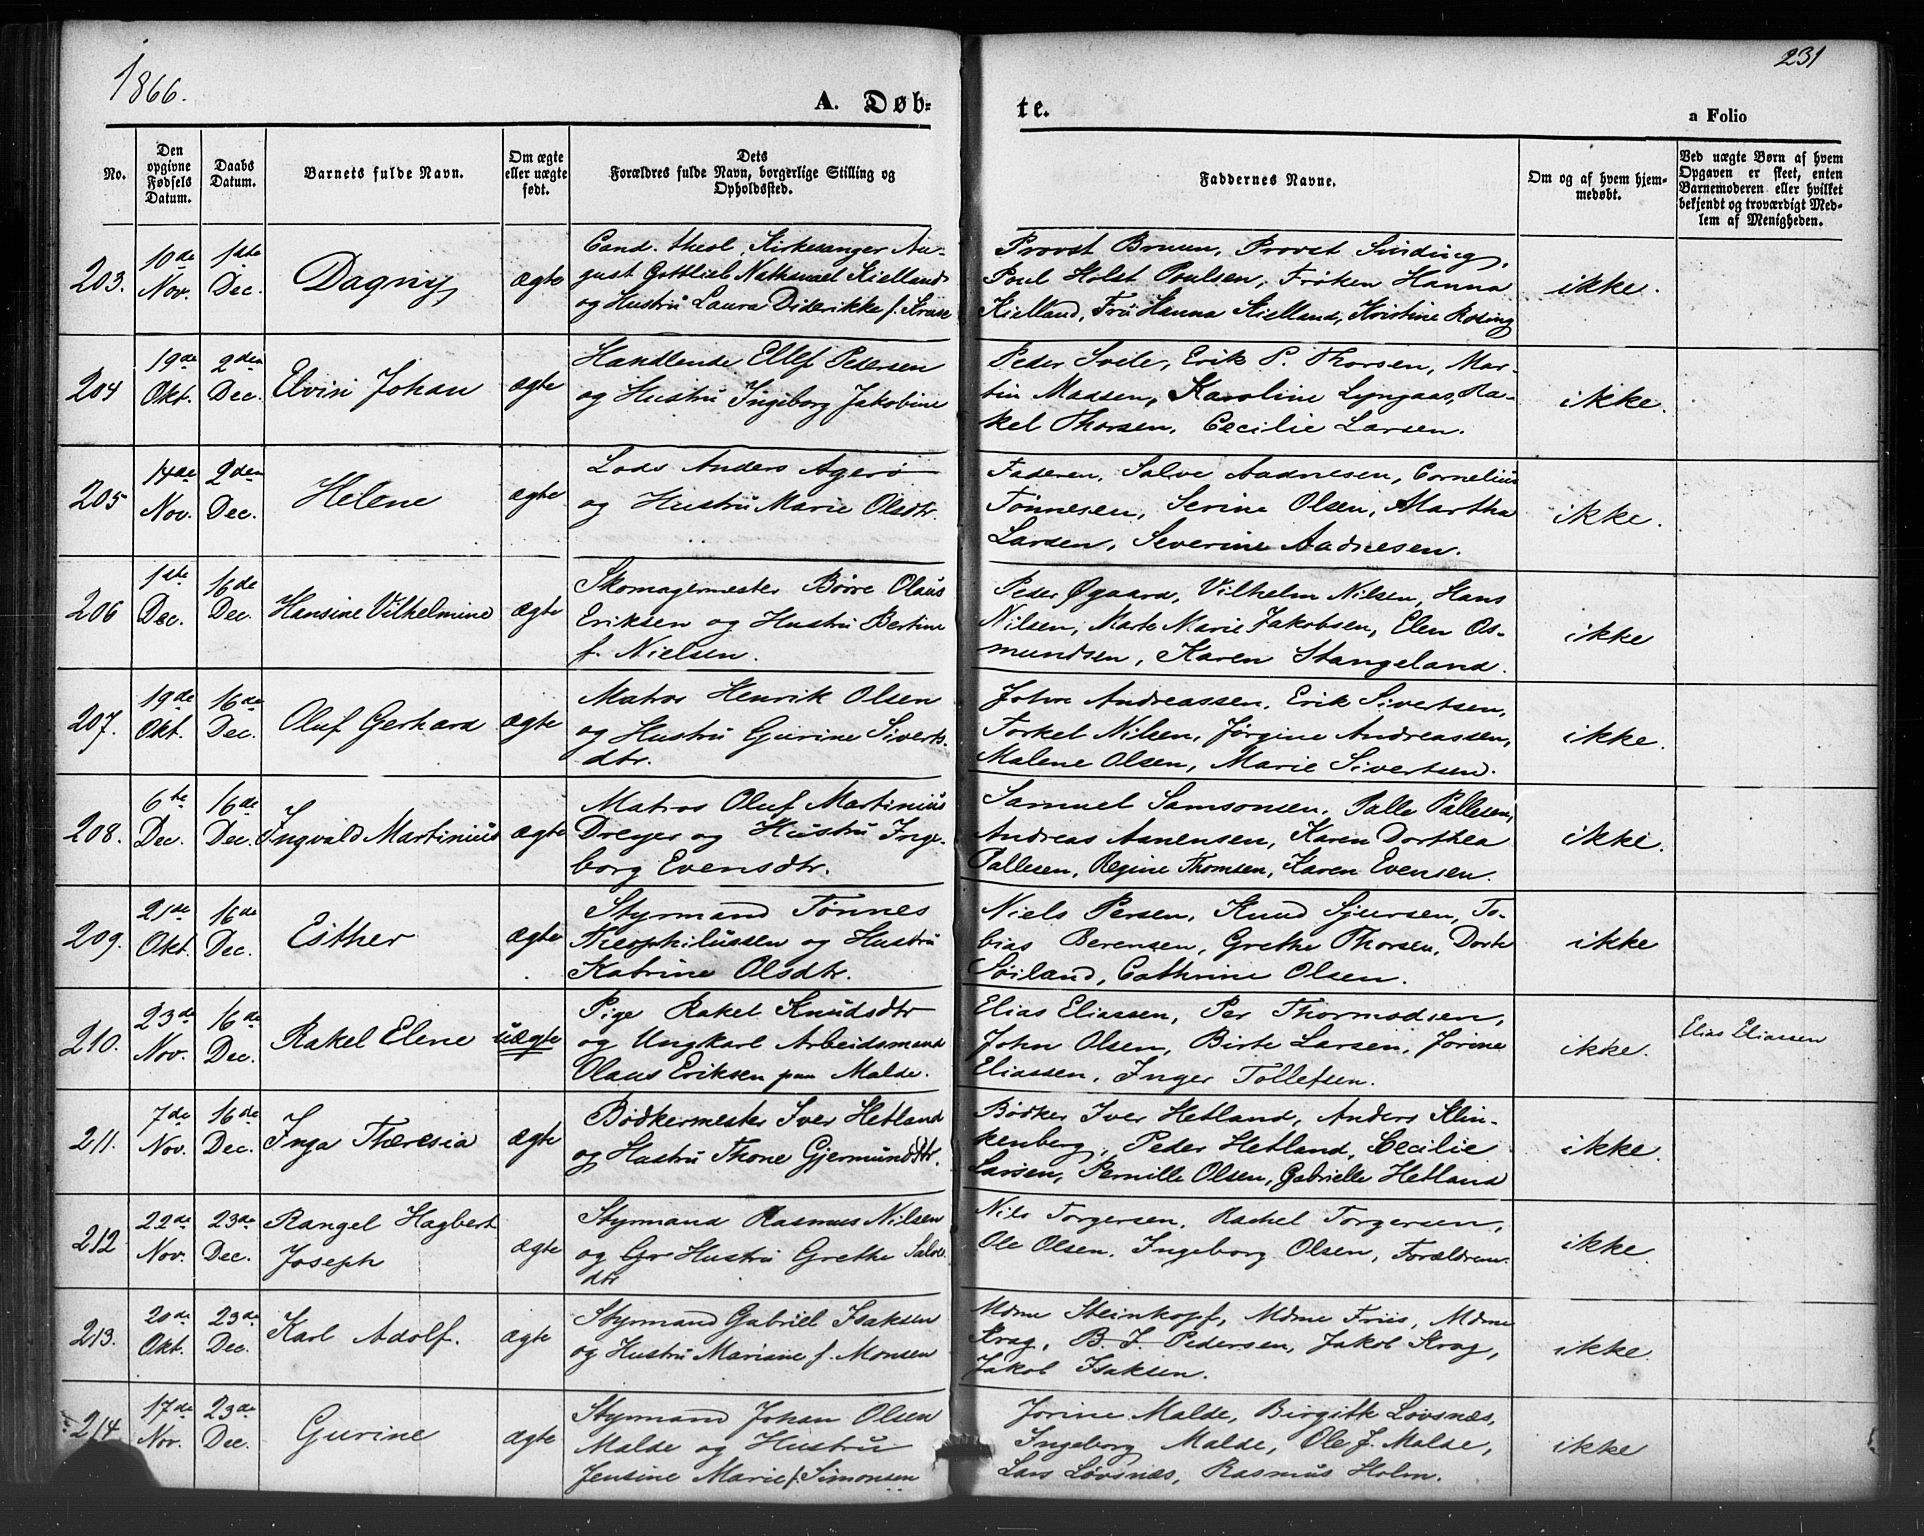 1866.
231
A. Døb-
te.
a Folio
No.
Den opgivne Fødsels Datum.
Daabs Datum.
Barnets fulde Navn.
Om ægte eller uægte født.
Dets Forældres fulde Navn, borgerlige Stilling og Opholdssted.
Faddernes Navne.
Om og af hvem hjemmedøbt.
Ved uægte Børn af hvem Opgaven er skeet, enten Barnemoderen eller hvilket bekjendt og troværdigt Medlem af Menigheden.
203. 10de Nov. 1ste Dec. Dagny ægte
Cand. theol. Kirkesanger Au-
gust Gottlieb Nathanael Kielland
og Hustru Laura Diderikke f. Kruse
Provst Bruun, Provst Sinding,
Poul Holst Poulsen, Frøken Hanna
Kielland, Fru Hanna Kielland, Kristine Rosing
ikke.
204 19de Okt. 2den Dec. Elvin Johan ægte
Handlende Ellef Pedersen
og Hustru Ingeborg Jakobine
Peder Svele, Erik P. Thorsen, Mar-
tin Madsen, Karoline Lyngaas, Ra-
kel Thorsen, Cecilie Larsen.
ikke.
205 14de Nov. 2den Dec. Helene ægte
Lods Anders Agerø
og Hustru Marie Olsdtr.
Faderen, Salve Aadnesen, Cornelius
Tønnesen, Serine Olsen, Martha
Larsen, Severine Aadnesen.
ikke.
206 1ste Dec. 16de Dec. Hansine Vilhelmine ægte
Skomagermester Børre Olaus
Eriksen og Hustru Bertine
f. Nielsen.
Peder Øgaard, Vilhelm Nilsen, Hans
Nilsen, Marte Marie Jakobsen, Elen Os-
mundsen, Karen Stangeland.
ikke
207. 19de Okt. 16de Dec. Oluf Gerhard ægte
Matros Henrik Olsen
og Hustru Gurine Siverts-
dtr.
John Andreassen, Erik Sivertsen,
Torkel Nilsen, Jørgine Andreassen,
Malene Olsen, Marie Sivertsen.
ikke.
208. 6te Dec. 16de Dec. Ingvald Martinius ægte
Matros Oluf Martinius
Dreyer og Hustru Inge-
borg Evensdtr.
Samuel Samsonsen, Palle Pallesen,
Andreas Aanensen, Karen Dorthea
Pallesen, Regine Thomsen, Karen Evensen.
ikke.
209. 21de Okt. 16de Dec. Esther ægte
Styrmand Tønnes
Theophilussen og Hustru
Katrine Olsdtr.
Niels Persen, Knud Sjursen, To-
bias Berensen, Grethe Thorsen, Dorte
Søiland, Cathrine Olsen.
ikke
210. 23de Nov. 16de Dec. Rakel Elene uægte
Pige Rakel Knudsdtr
og Ungkarl Arbeidsmand
Olaus Eriksen paa Malde.
Elias Eliassen, Per Thormodsen,
John Olsen, Birte Larsen, Jørine
Eliassen, Inger Tollefsen.
ikke.
Elias Eliassen
211. 7de Nov. 16de Dec. Inga Theresia ægte
Bødkermester Iver Hetland
og Hustru Thone Gjermundsdtr.
Bødker Iver Hetland, Anders Klin-
kenberg, Peder Hetland, Cecilie
Larsen, Pernille Olsen, Gabrielle Hetland
ikke.
212 22de Nov. 23de Dec. Rangel Hagbert
Joseph ægte
Styrmand Rasmus Nilsen
og Gr Hustru Grethe Salve
dtr
Nils Torgersen, Rachel Torgersen,
Ole Olsen, Ingeborg Olsen, Forældrene.
ikke
213. 20de Okt. 23de Dec. Karl Adolf. ægte
Styrmand Gabriel Isaksen
og Hustru Mariane f. Monsen
Mdme Steinkopf, Mdme Friis, Mdme
Krag, B. J. Pedersen, Jakob Krag,
Jakob Isaksen.
ikke.
214 17de Nov. 23de Dec. Gurine ægte
Styrmand Johan Olsen
Malde og Hustru
Jensine Marie f. Simonsen
Jorine Malde, Birgitte Lovsnæs,
Ingeborg Malde, Ole J. Malde,
Lars Løvsnæs, Rasmus Holm.
ikke